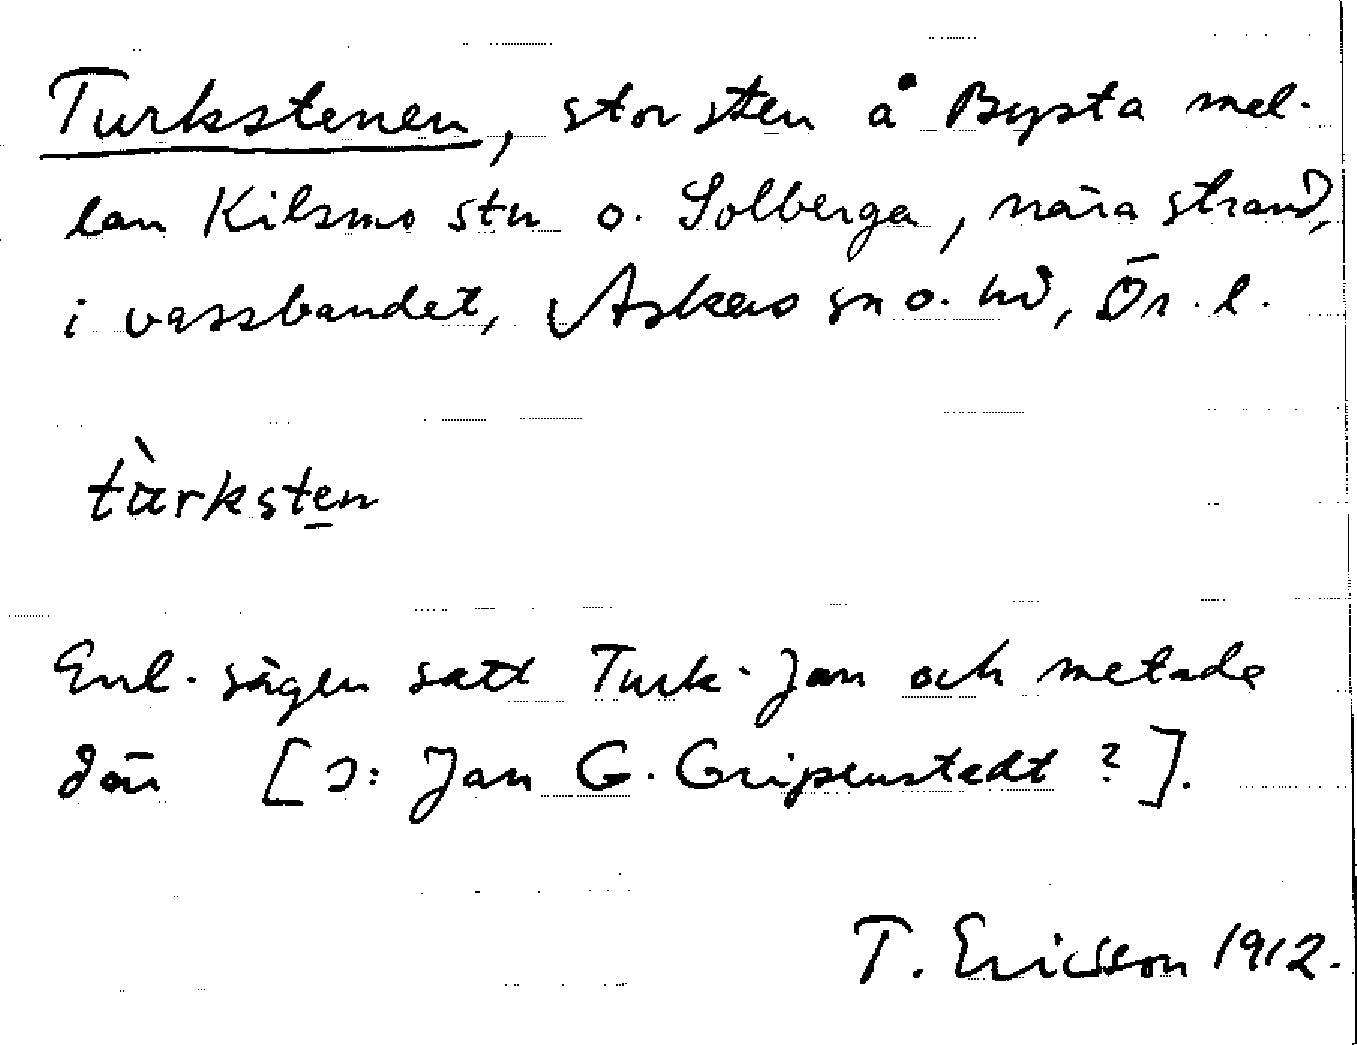 Turkstenen, stor sten å Bysta mel-
lan Kilsmo stn o. Solberga, nära strand,
i vassbandet, Askers sn o. hd, Ör. l.
tùrksten
Enl. sägen satt Turk-Jan och metade
där [ɔ: Jan G. Gripenstedt ?].
T. Ericsson 1912.